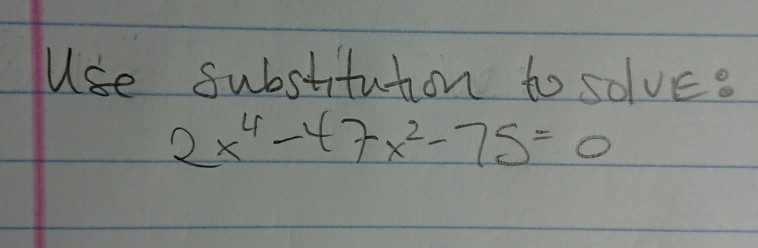 Use substitution to solve:
2x⁴-47x²-75=0